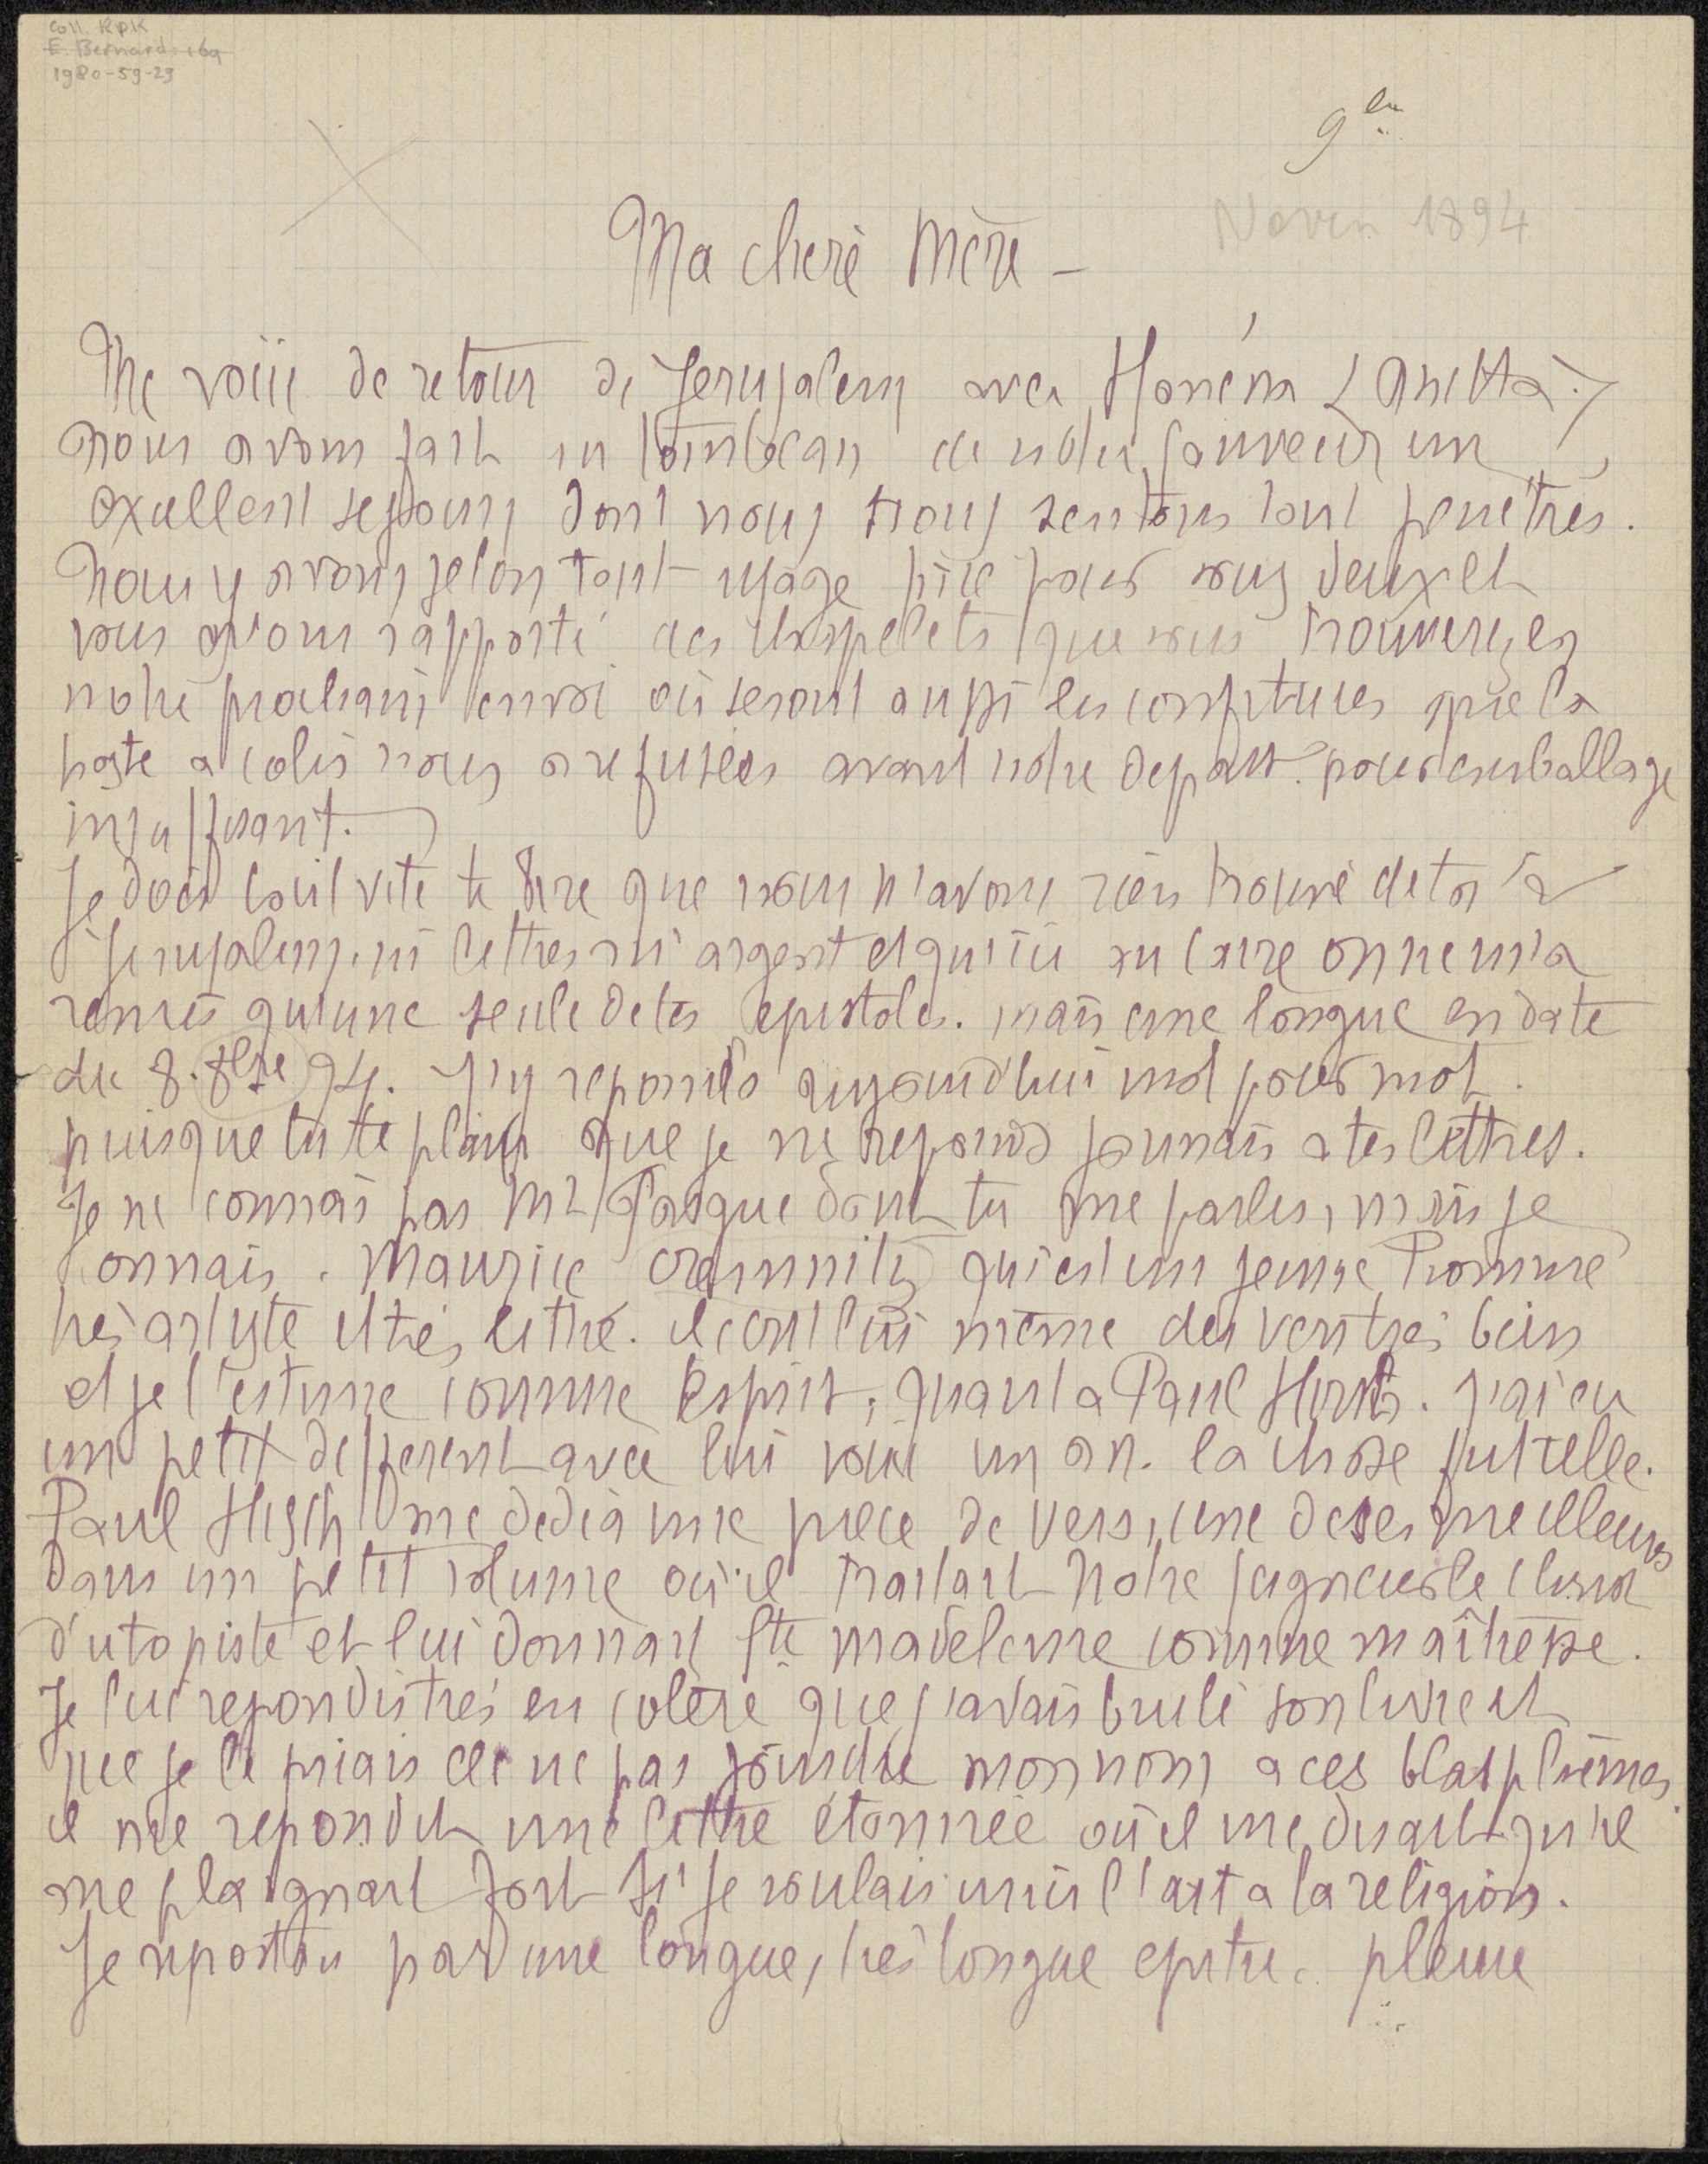 Coll. RPK
E. Bernard: 169
1980-59-29
9
Novem 1894
Ma cherè Mère -
Me voiic de retour de Jerusalem avec Honéna Zanitta.
nous avons fait au tombeau de notre sauveur un
exellent sejours dont nous nous sentons tout penétrés.
Nous y avons selon tout usage prié pour vous deux et
vous avons rapporté des chapelets que vous trouverez en
notre prochain envoi où seront aussi les confitures que la
poste a colis nous a refusées avant notre depart. pour emballage
insuffisant.
Je dois tout vite te dire que nous n'avons rien trouvé de toi à
Jerusalem. ni lettres ni argent et qu'ici au Caire on ne m'a
remis qu'une seule de tes epistoles. mais une longue en date
du 8. 8bre 94. J'y reponds aujourd'hui mot pour mot.
puisque tu te plains que je ne reponds jamais a tes lettres.
Je ne connais pas Mr dont tu me parles, mais je
connais. Maurice Cremnitz qui est un jeune homme
très artyste et très lettré. il écrit lui même des vers très bien
et je l'estime comme esprit. quant a Paul Hirsch. j'ai eu
un petit different avec lui voici un an. la chose fut telle.
Paul Hirsch me dedia une piece de vers, une de ses meilleures
dans un petit volume où il traitait Notre seigneur le Christ
d'utopiste et lui donnait Ste madeleine comme maîtresse.
Je lui repondis très en colère que j'avais brulé son livre et
que je le priais de ne pas joindre mon nom a ces blasphèmes.
il me repondit une lettre étonnée où il me disait qu'il
me plaignait fort si je voulais unir l'art a la religion.
Je ripostai par une longue, très longue epitre. pleine